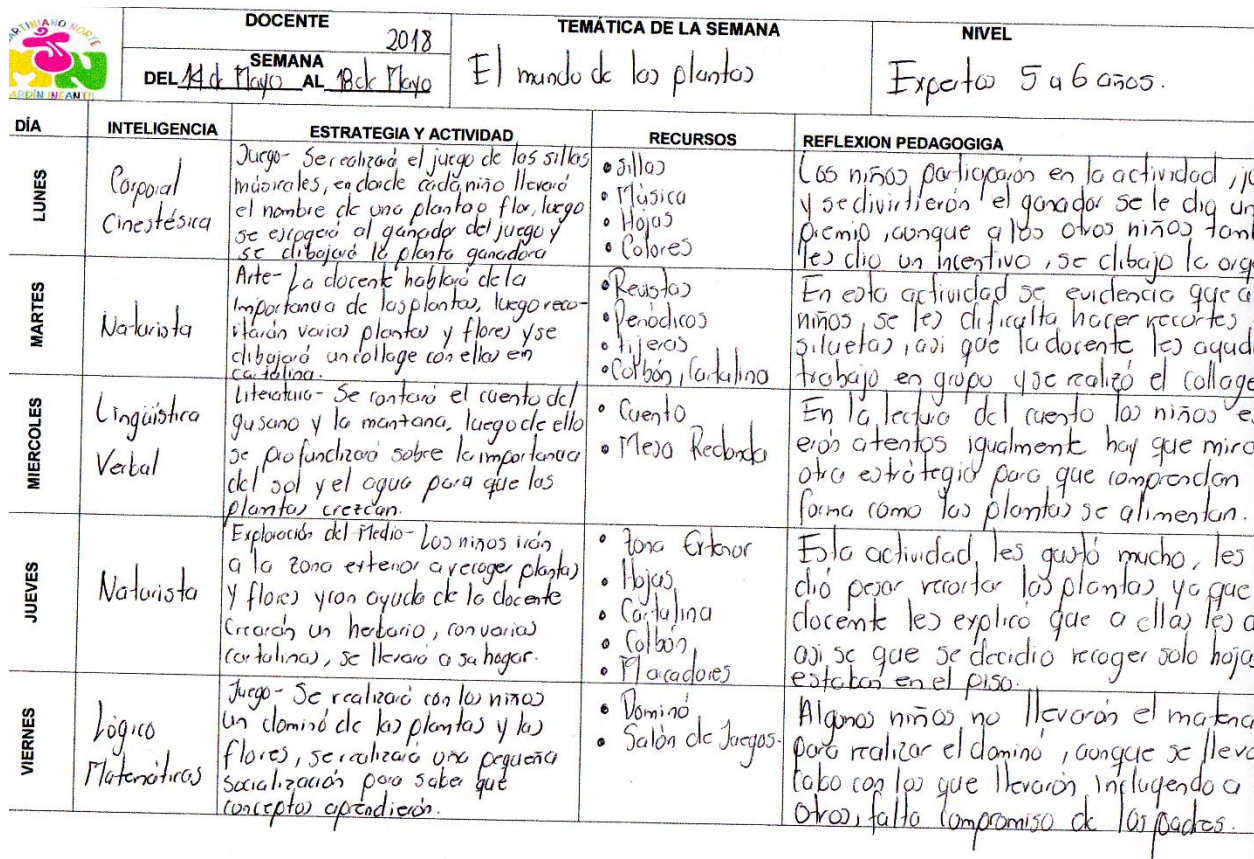 MARTINIANO NORTE
JARDÍN INFANTIL
DOCENTE
2018
SEMANA
DEL 14 de Mayo AL 18 de Mayo
TEMÁTICA DE LA SEMANA
El mundo de las plantas
NIVEL
Expertos 5 a 6 años.
DÍA
INTELIGENCIA
ESTRATEGIA Y ACTIVIDAD
RECURSOS
REFLEXION PEDAGOGIGA
LUNES
Corporal
Cinestésica
Juego- Se realizará el juego de las sillas
músicales, en donde cada niño llevará
el nombre de una planta o flor, luego
se escogerá al ganador del juego y
se dibajará la planta ganadora
• Sillas
• Música
• Hojas
• Colores
Los niños participarón en la actividad,
y se divirtierón el ganador se le dio un
premio, aunque a los otros niños tam
les dio un incentivo, se dibajo la
MARTES
Naturista
Arte- La docente hablará de la
importancia de las plantas, luego reco-
rtarán varias plantas y flores y se
dibajará un collage con ellas en
cartalina.
• Revistas
• Periódicos
• tijeras
• Colbón, Cartalina
En esta actividad se evidencia que a
niños, se les dificalta hacer recortes
siluetas, asi que la docente les ayud
trabajo en grupo y se realizó el collage
MIERCOLES
Lingüística
Verbal
Literatura- Se contará el cuento del
gusano y la manzana, luego de ello
se profundizará sobre la importancia
del sol y el agua para que las
plantas crezcan.
• Cuento
• Mesa Redonda
En la lectura del cuento los niños e
erón atentos igualmente hay que mira
otra estrátegia para que comprendan
forma como las plantas se alimentan.
JUEVES
Naturista
Exploración del Medio- Los niños irán
a la zona exterior a recoger plantas
y flores y con ayuda de la docente
Crearán un herbario, con varias
cartalinas, se llevará a su hogar.
• Zona Exterior
• Hojas
• Cartulina
• Colbón
• Marcadores
Esla actividad, les gustó mucho, les
dió pesar recortar las plantas, ya que
docente les explicó que a ellas les d
asi se que se decidio recoger solo hoja
estaban en el piso.
VIERNES
Lógico
Matemáticas
Juego- Se realizará con los niños
un dominó de las plantas y las
flores, se realizará una pequeña
socialización para saber que
conceptos aprendierón.
• Dominó
• Salón de Juegos.
Algunos niños no llevarón el materia
para realizar el dominó, aunque se lleva
cabo con los que llevarón, incluyendo a
otros, falta compromiso de los padres.